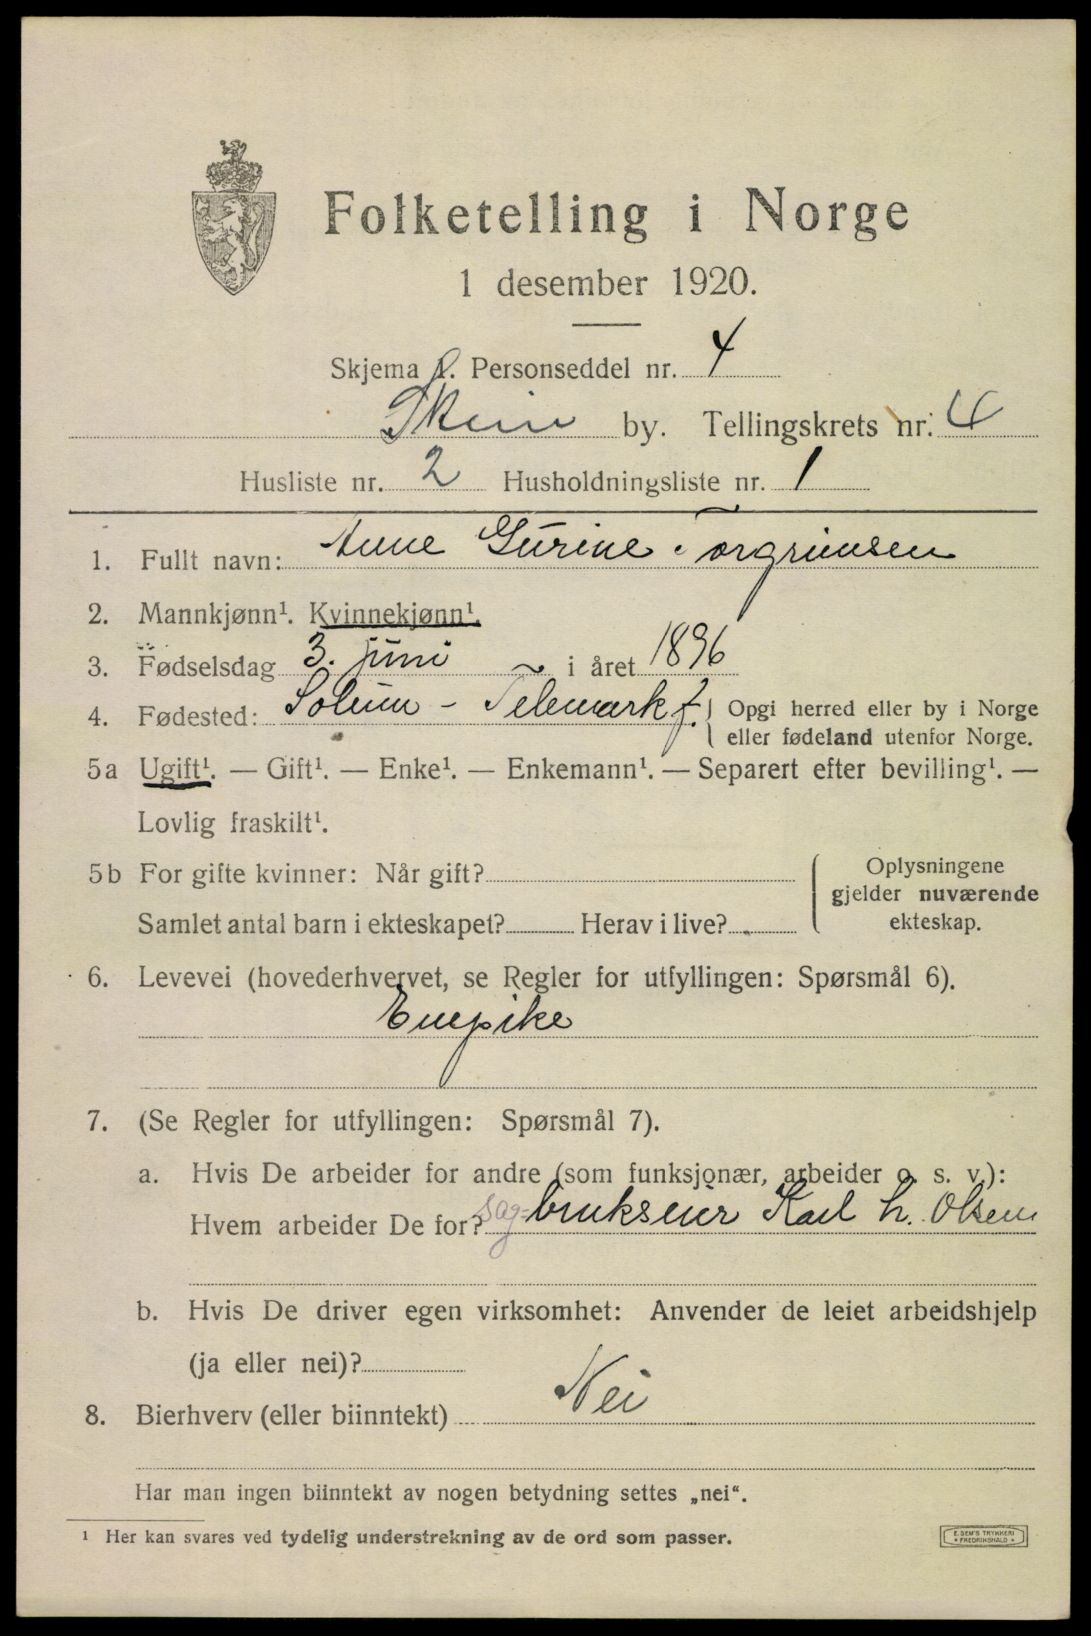 Folketelling i Norge
1 desember 1920.
Skjema 1. Personseddel nr. 4
Skien by. Tellingskrets nr. 4
Husliste nr. 2 Husholdningsliste nr. 1
1. Fullt navn: Anne Gurine Torgrimsen
2. Mannkjønn¹. Kvinnekjønn¹.
3. Fødselsdag 3. juni i året 1896
4. Fødested: Solum - Telemark f. Opgi herred eller by i Norge
eller fødeland utenfor Norge.
5a Ugift¹. — Gift¹. — Enke¹. — Enkemann¹. — Separert efter bevilling¹. —
Lovlig fraskilt¹.
5b For gifte kvinner: Når gift?
Samlet antal barn i ekteskapet? Herav i live?
Oplysningene
gjelder nuværende
ekteskap.
6. Levevei (hovederhvervet, se Regler for utfyllingen: Spørsmål 6).
Enepike
7. (Se Regler for utfyllingen: Spørsmål 7).
a. Hvis De arbeider for andre (som funksjonær, arbeider o. s. v.):
Hvem arbeider De for? sag=brukseier Karl L. Olsen
b. Hvis De driver egen virksomhet: Anvender de leiet arbeidshjelp
(ja eller nei)?
8. Bierhverv (eller biinntekt) Nei
Har man ingen biinntekt av nogen betydning settes „nei“.
¹ Her kan svares ved tydelig understrekning av de ord som passer.
E. SEM'S TRYKKERI
FREDRIKSHALD